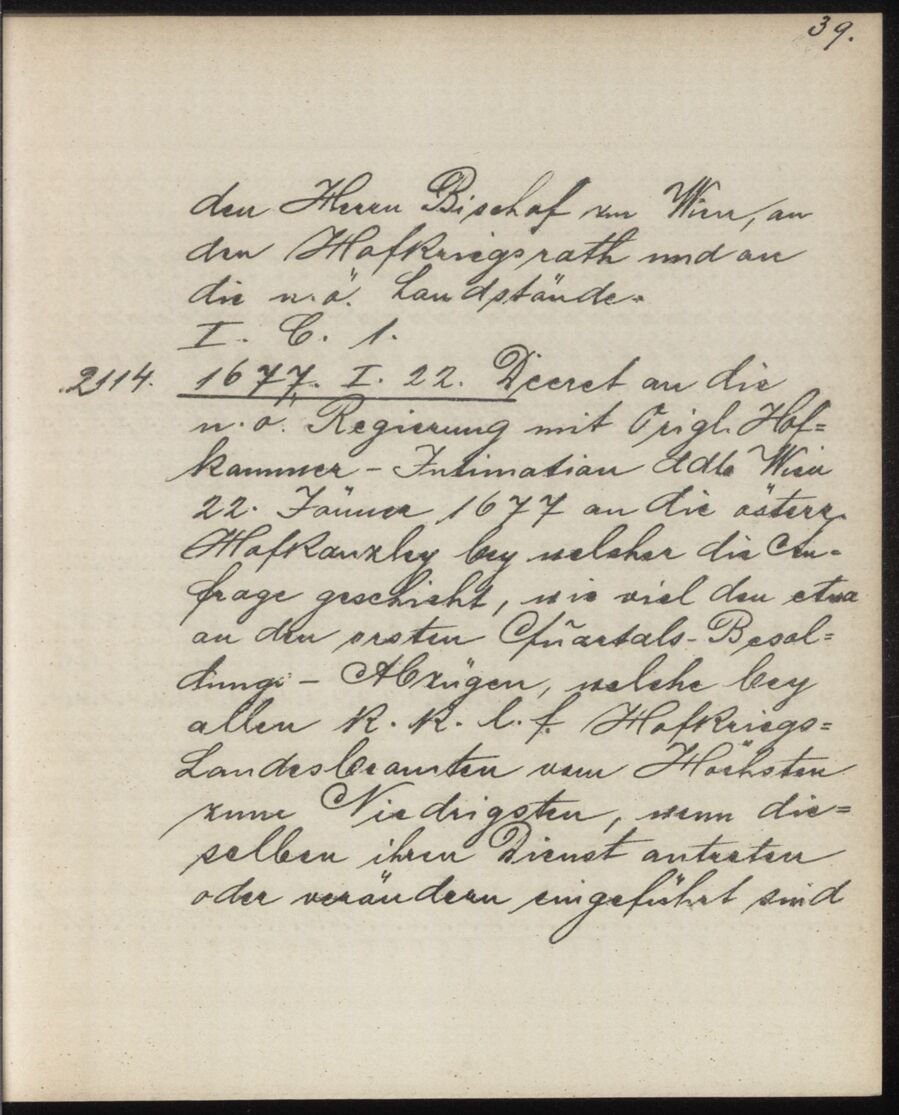 39.
den Herrn Bischof zu Wien, an
den Hofkriegsrath und an
die n. ö. Landstände.
I. C. 1.
2114. 1677. I. 22. Decret an die
n. ö. Regierung mit Origl. Hof=
kammer - Intimation ddto Wien
22. Jänner 1677 an die österr.
Hofkanzley bey welcher die An-
frage geschieht, wie viel den etwa
an den ersten Quartals-Besol=
dungs - Abzügen, welche bey
allen K. K. l. f. Hofkriegs=
Landesbeamten vom Höchsten
zum Niedrigsten, wenn die=
selben ihren Dienst antreten
oder verändern eingeführt sind